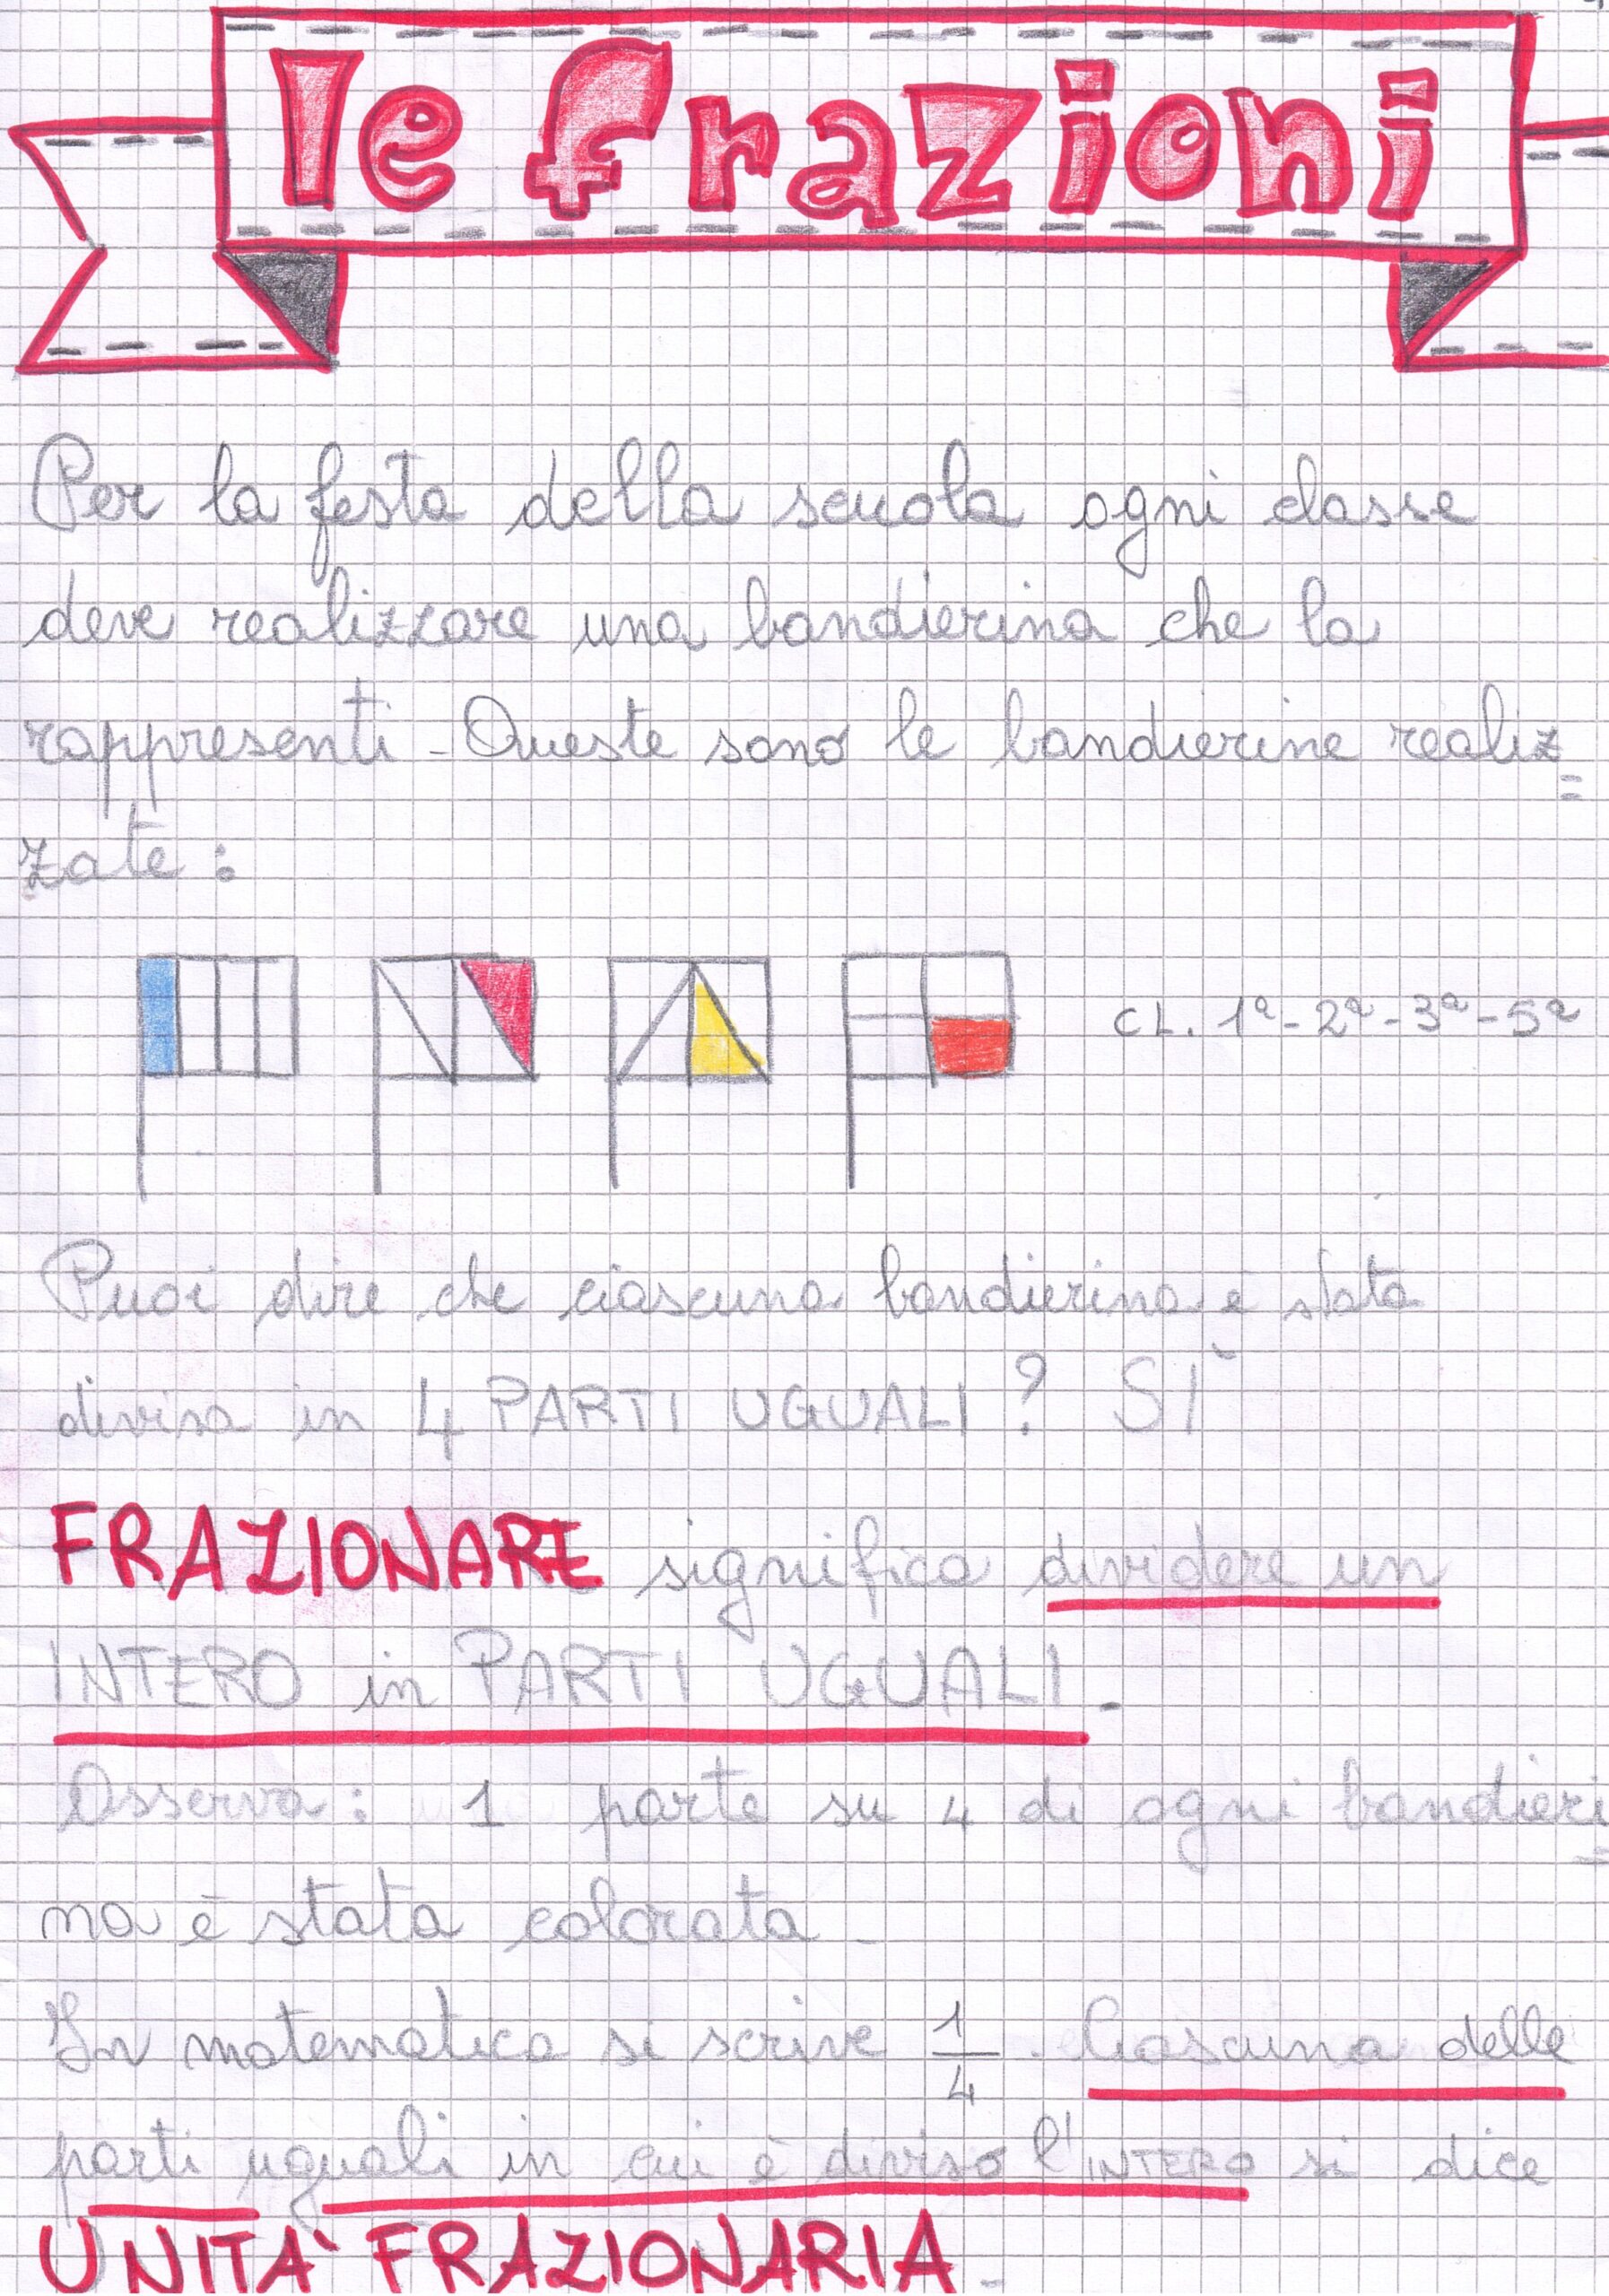 le frazioni
Per la festa della scuola ogni classe
deve realizzare una bandierina che la
rappresenti - Queste sono le bandierine realiz=
zate :
CL. 1ª - 2ª - 3ª - 5ª
Puoi dire che ciascuna bandierina è stata
divisa in 4 PARTI UGUALI ? SÌ
FRAZIONARE significa dividere un
INTERO in PARTI UGUALI.
Osserva : 1 parte su 4 di ogni bandieri=
na è stata colorata -
In matematica si scrive 1/4 . Ciascuna delle
parti uguali in cui è diviso l'INTERO si dice
UNITA' FRAZIONARIA -